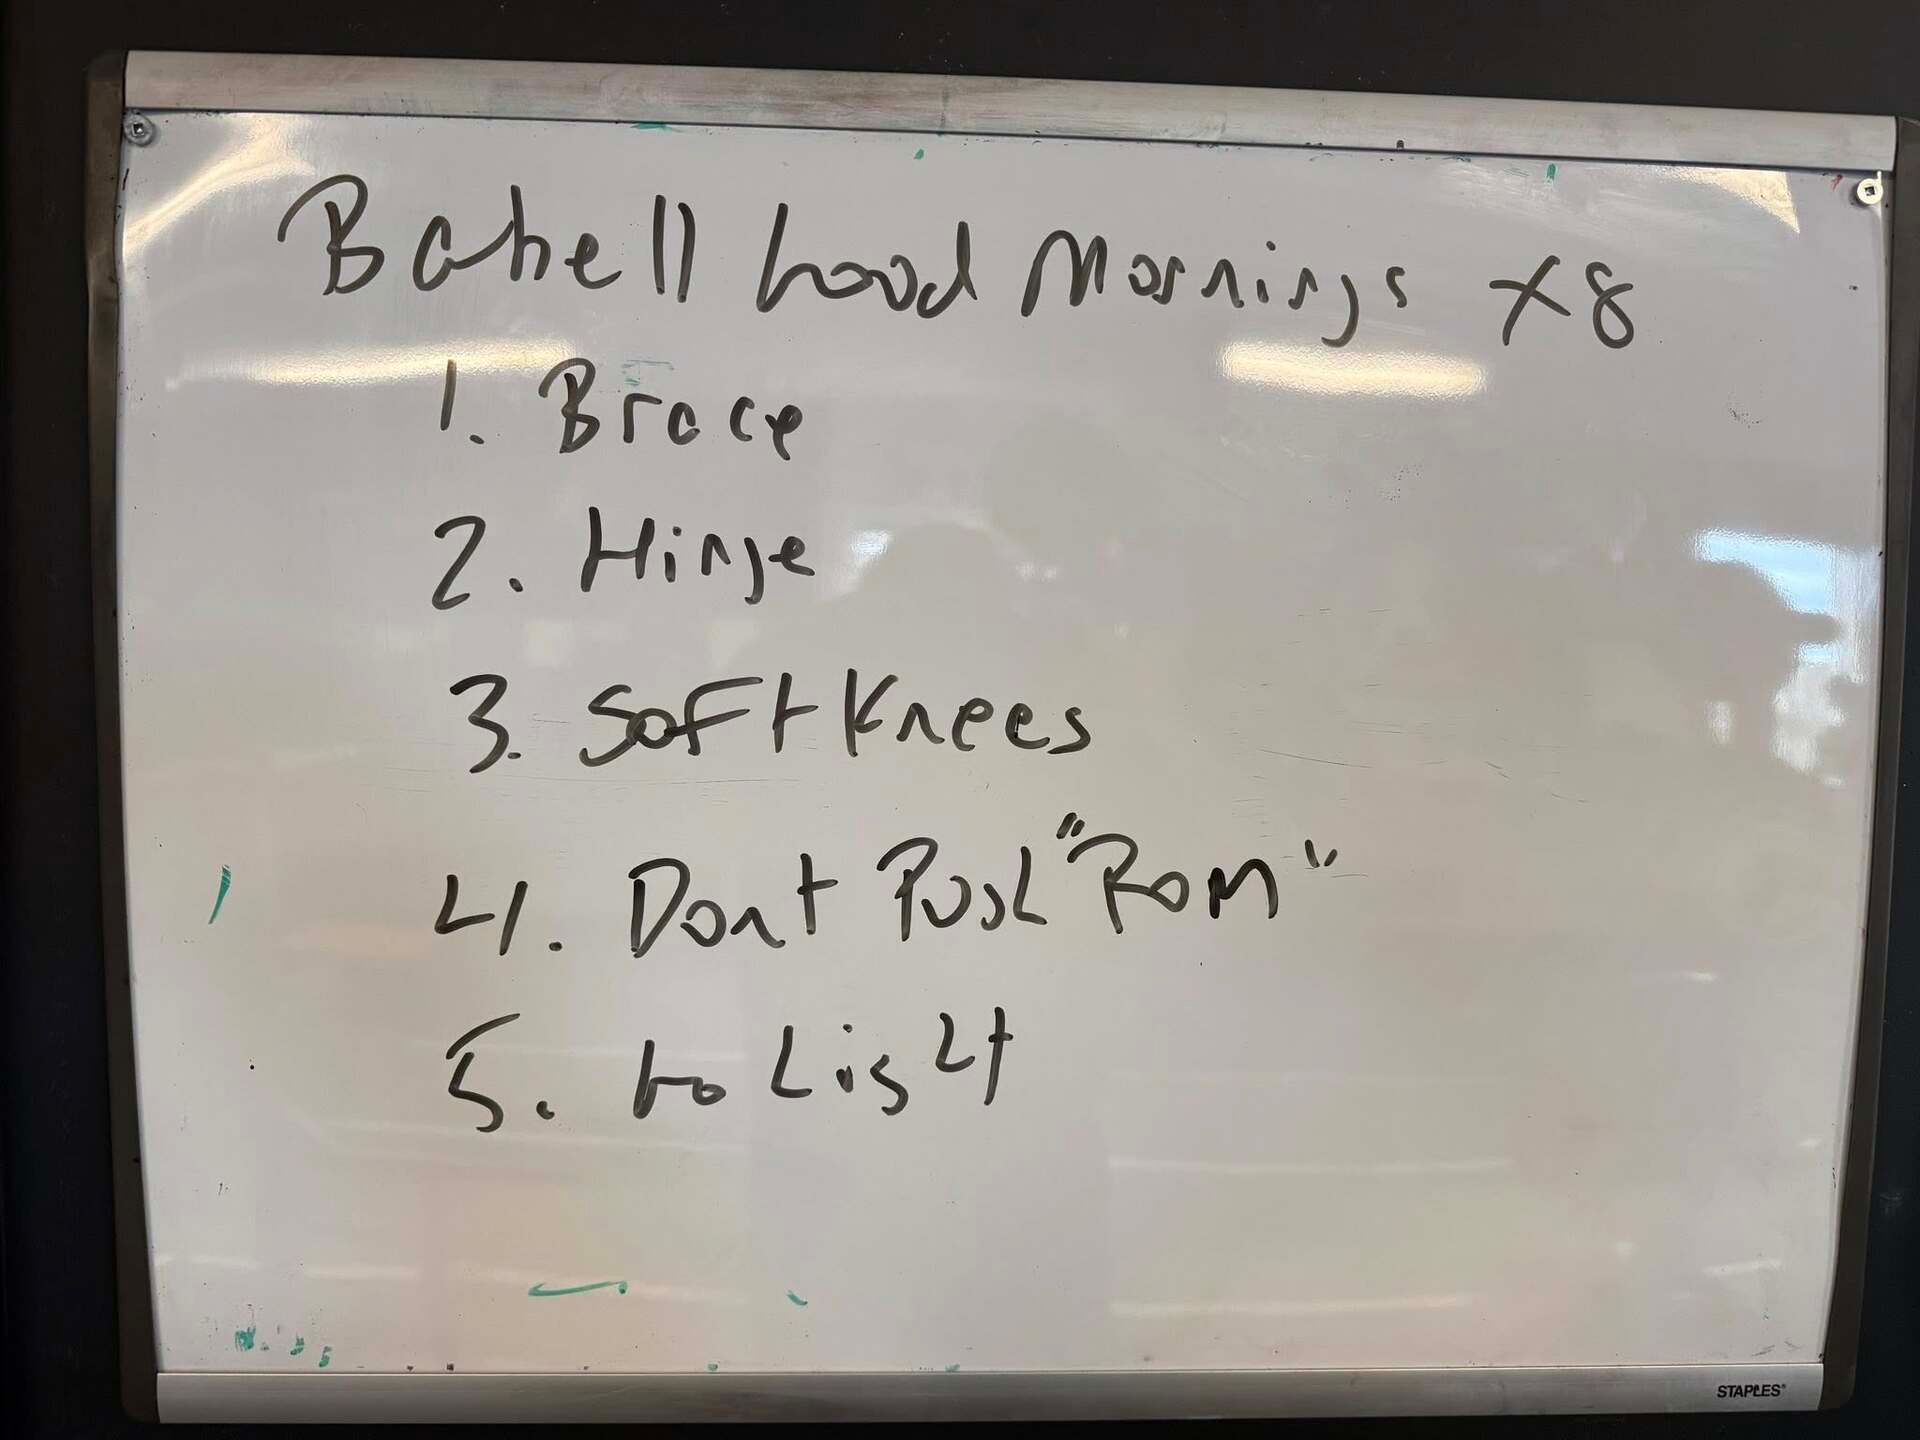 Babell Good Mornings x8
1. Brace
2. Hinge
3. Soft Knees
4. Dont Push "Rom"
5. Go Light
STAPLES